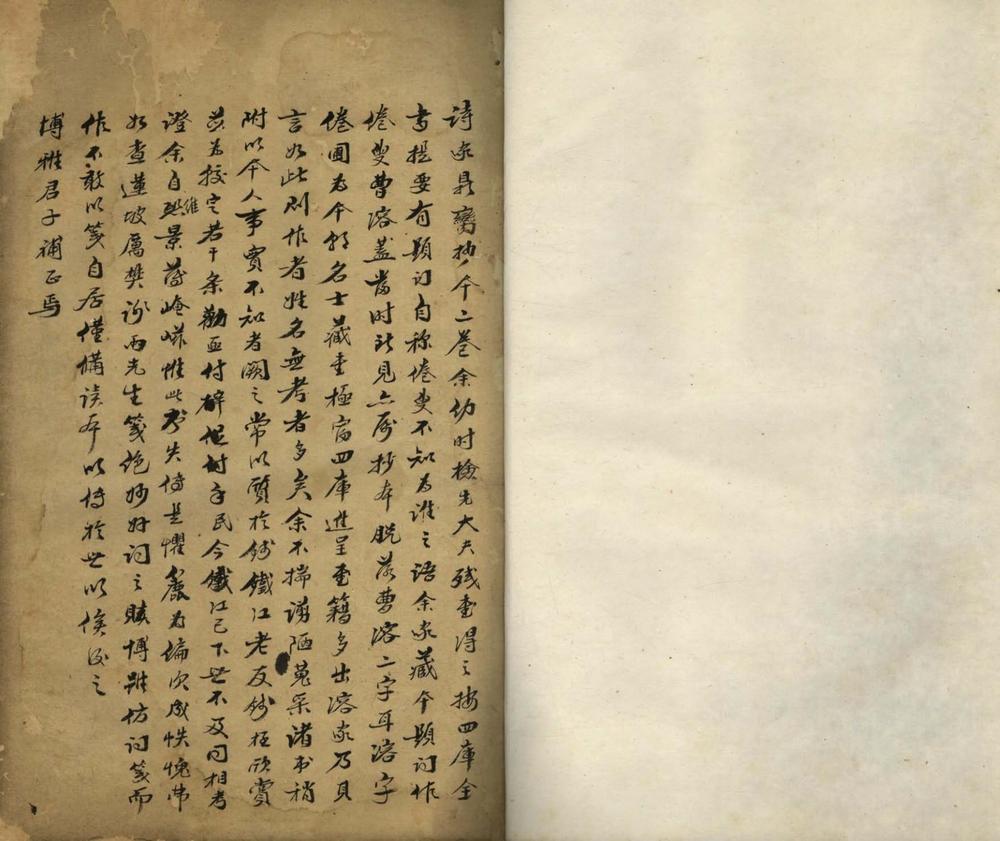 詩家鼎臠抄本二卷余幼時檢先大夫殘書得之按四庫全
書提要有題詞自稱倦叟不知為誰之語余家藏本題詞作
倦叟曹溶蓋當時所見之原抄本脫落曹溶二字耳溶字
倦圃為本朝名士藏書極富四庫進呈書籍多出溶家乃其
言如此則作者姓名無考者多矣余不揣謭陋蒐采諸書稍
附以本人事實不知者闕之常以質於錢鐵江老友錢極欣賞
並為校定若干條勸亟付手民今鐵江已下世不及同相考
證余自維景薄崦嵫惟此書失傳是懼爰為編次成帙愧弗
如查蓮坡厲樊榭兩先生箋絕妙好詞之賅博雖仿詞箋而
作不敢以箋自居僅備讀本以傳於世以俟後之
博雅君子補正焉